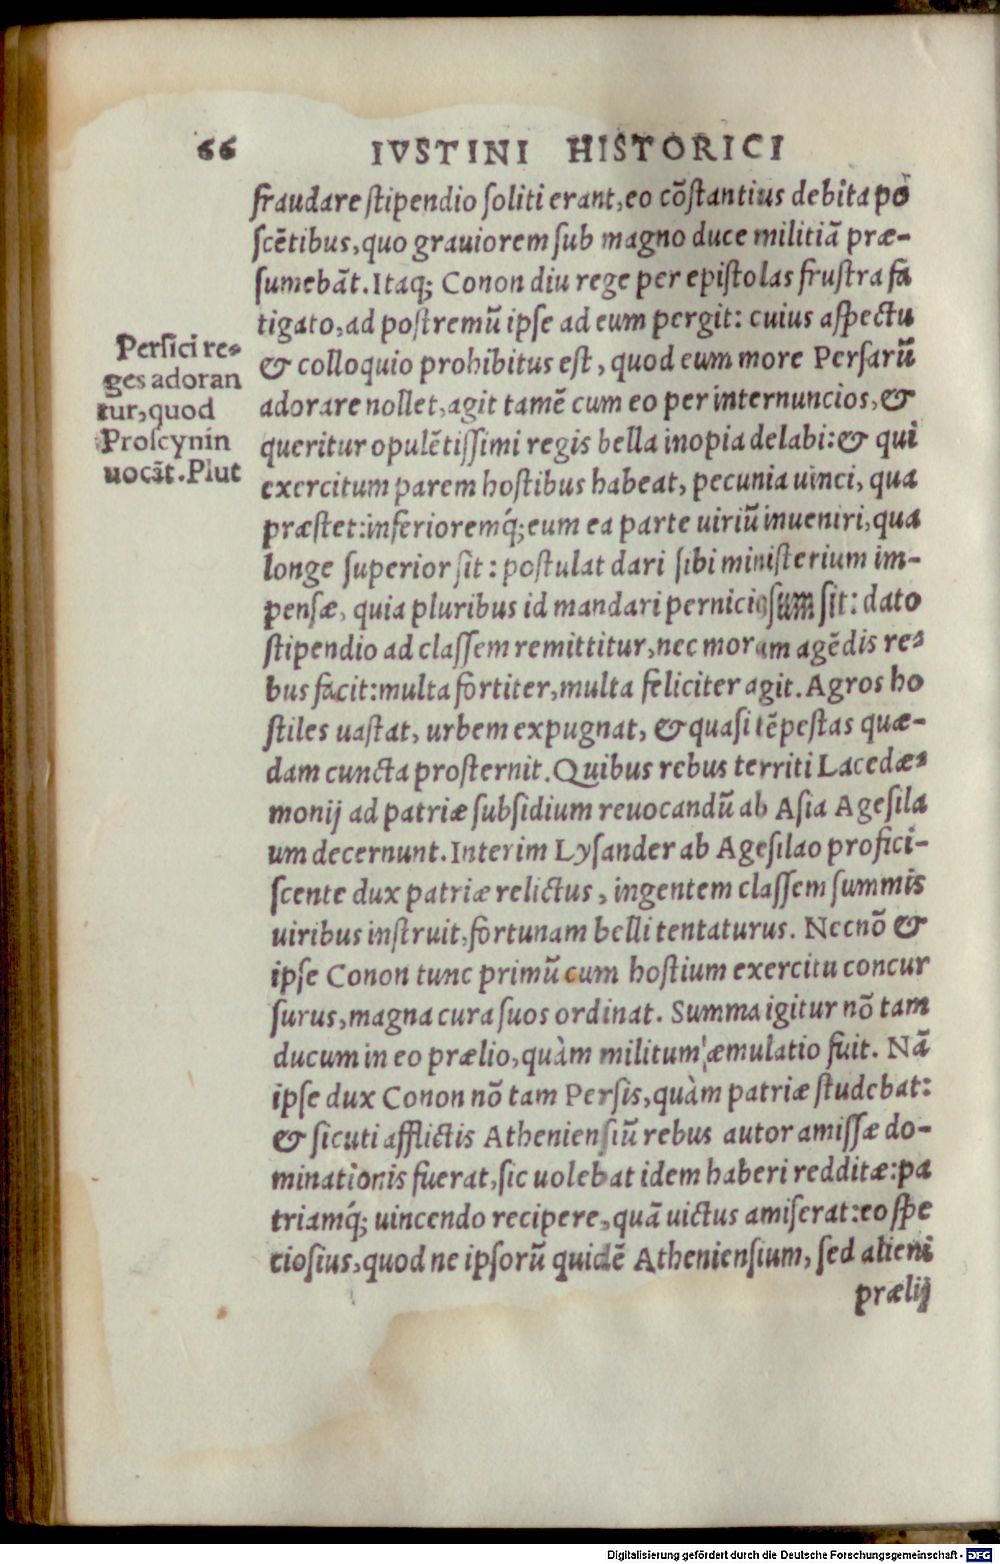 66 IVSTINI HISTORICI
fraudare ſtipendio ſoliti erant, eo cõſtantius debita po
ſcẽtibus, quo grauiorem ſub magno duce militiã præ-
ſumebãt. Itaq; Conon diu rege per epiſtolas fruſtra fa
tigato, ad poſtremũ ipſe ad eum pergit: cuius aſpectu
& colloquio prohibitus eſt, quod eum more Perſarũ
adorare nollet, agit tamẽ cum eo per internuncios, &
queritur opulẽtiſſimi regis bella inopia delabi: & qui
exercitum parem hoſtibus habeat, pecunia uinci, qua
præſtet: inferioremq́; eum ea parte uiriũ inueniri, qua
longe ſuperior ſit: poſtulat dari ſibi miniſterium im-
penſæ, quia pluribus id mandari pernicioſum ſit: dato
ſtipendio ad claſſem remittitur, nec moram agẽdis re-
bus facit: multa fortiter, multa feliciter agit. Agros ho
ſtiles uaſtat, urbem expugnat, & quaſi tẽpeſtas quæ-
dam cuncta proſternit. Quibus rebus territi Lacedæ-
monij ad patriæ ſubſidium reuocandũ ab Aſia Ageſila
um decernunt. Interim Lyſander ab Ageſilao profici-
ſcente dux patriæ relictus, ingentem claſſem ſummis
uiribus inſtruit, fortunam belli tentaturus. Necnõ &
ipſe Conon tunc primũ cum hoſtium exercitu concur
ſurus, magna cura ſuos ordinat. Summa igitur nõ tam
ducum in eo prælio, quàm militum æmulatio fuit. Nã
ipſe dux Conon nõ tam Perſis, quàm patriæ ſtudebat:
& ſicuti afflictis Athenienſiũ rebus autor amiſſæ do-
minationis fuerat, ſic uolebat idem haberi redditæ: pa
triamq́; uincendo recipere, quã uictus amiſerat: eo ſpe
cioſius, quod ne ipſorũ quidẽ Athenienſium, ſed alieni
prælij
Perſici re-
ges adoran
tur, quod
Proſcynin
uocãt. Plut
Digitalisierung gefördert durch die Deutsche Forschungsgemeinschaft - DFG